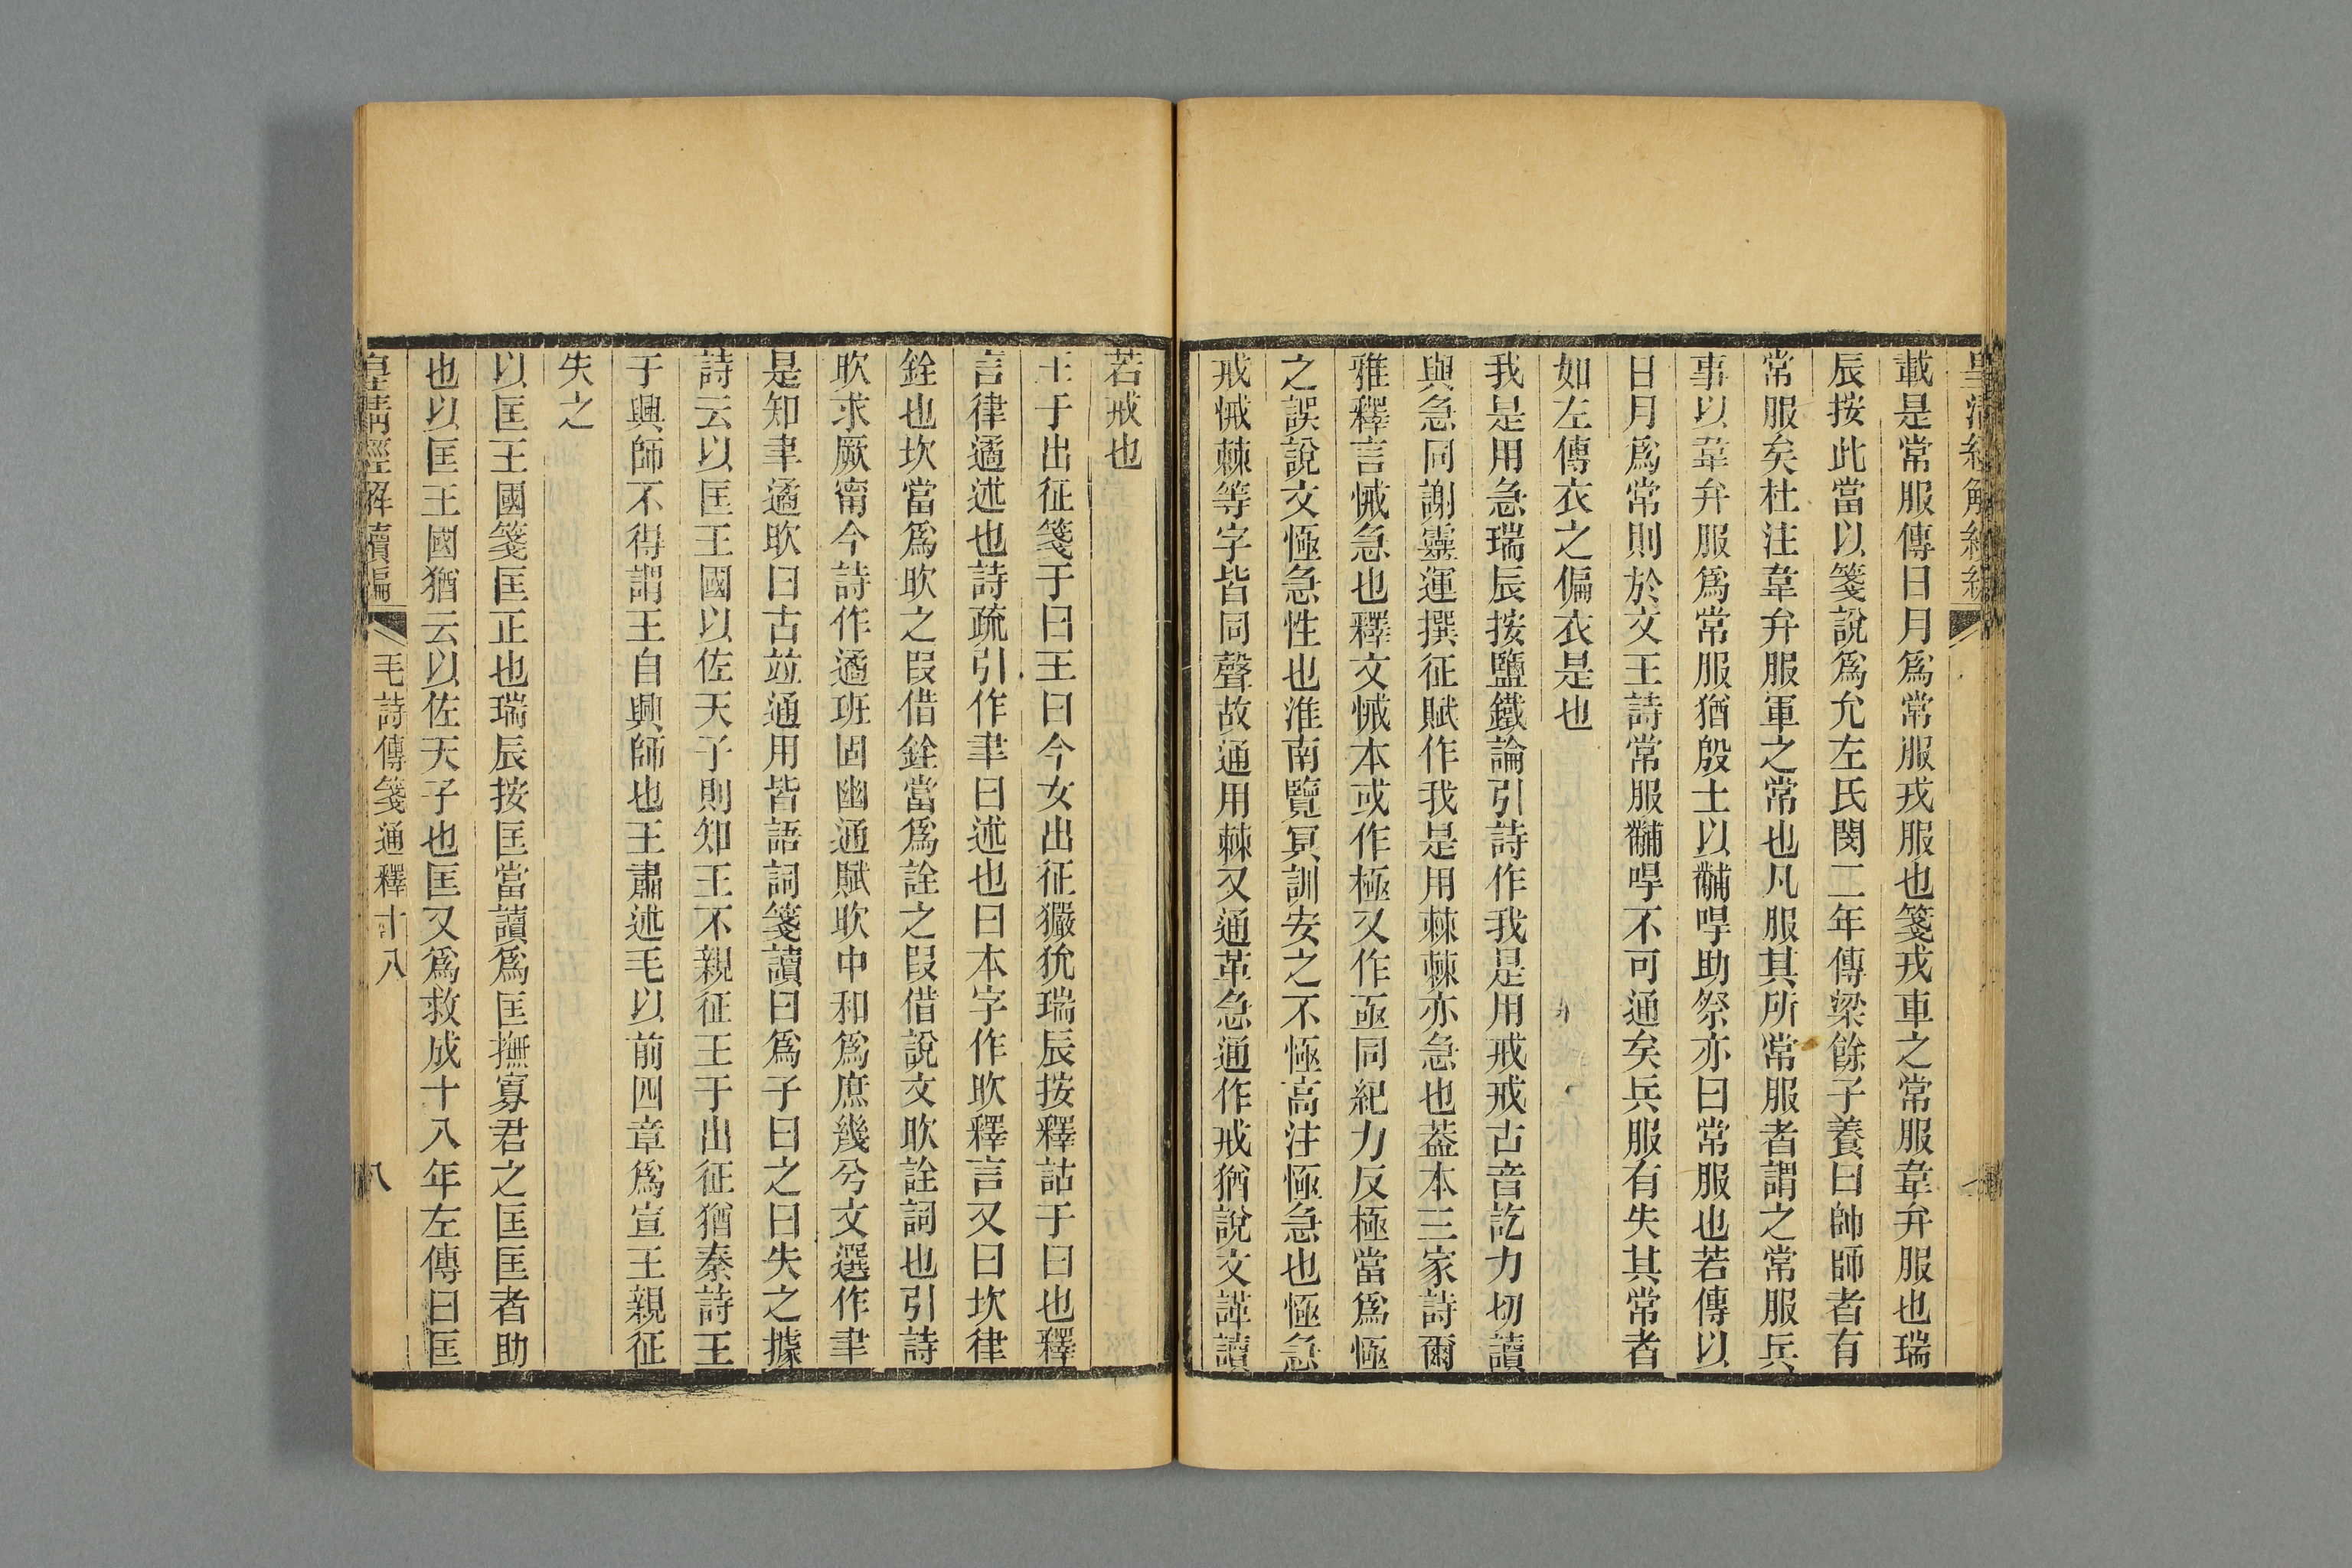 載是常服傳日月爲常服戎服也箋戎車之常服韋弁服也瑞
辰按此當以箋說爲允左氏閔二年傳梁餘子養曰帥師者有
常服矣杜注韋弁服軍之常也凡服其所常服者謂之常服兵
事以韋弁服爲常服猶殷士以黼冔助祭亦曰常服也若傳以
日月爲常則於文王詩常服黼冔不可通矣兵服有失其常者
如左傳衣之偏衣是也
我是用急瑞辰按鹽鐵論引詩作我是用戒戒古音訖力切讀
與急同謝靈運撰征賦作我是用棘棘亦急也葢本三家詩爾
雅釋言悈急也釋文悈本或作極又作亟同紀力反極當爲㥛
之誤說文㥛急性也淮南覽冥訓安之不㥛高注㥛急也㥛急
戒悈棘等字皆同聲故通用棘又通革急通作戒猶說文諽讀
若戒也
王于出征箋于曰王曰今女出征玁狁瑞辰按釋詁于曰也釋
言律遹述也詩疏引作聿曰述也曰本字作欥釋言又曰坎律
銓也坎當爲欥之叚借銓當爲詮之叚借說文欥詮詞也引詩
欥求厥甯今詩作遹班固幽通賦欥中和爲庶幾兮文選作聿
是知聿遹欥曰古竝通用皆語詞箋讀曰爲子曰之曰失之據
詩云以匡王國以佐天子則知王不親征王于出征猶秦詩王
于興師不得謂王自興師也王肅述毛以前四章爲宣王親征
失之
以匡王國箋匡正也瑞辰按匡當讀爲匡撫寡君之匡匡者助
也以匡王國猶云以佐天子也匡又爲救成十八年左傳曰匡
皇清經解續編
毛詩傳箋通釋十八
八